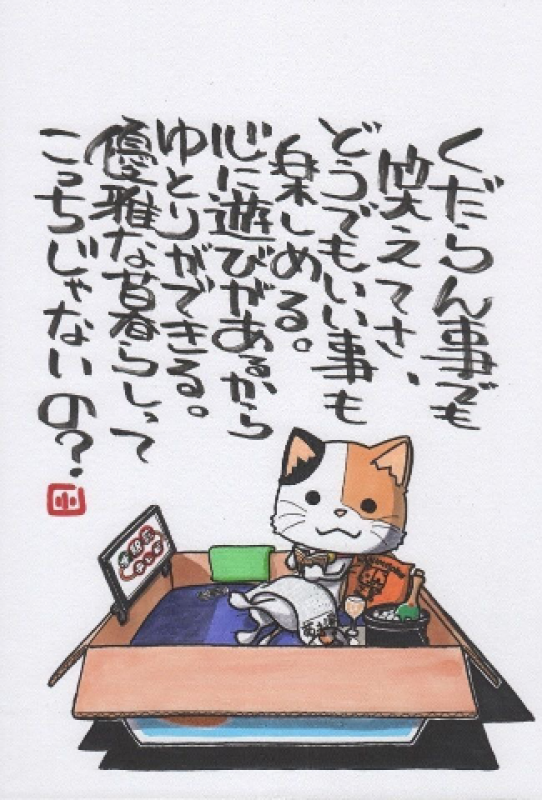 くだらん事でも
笑えてさ、
どうでもいい事も
楽しめる。
心に遊びがあるから
ゆとりができる。
優雅な暮らしって
こっちじゃないの?